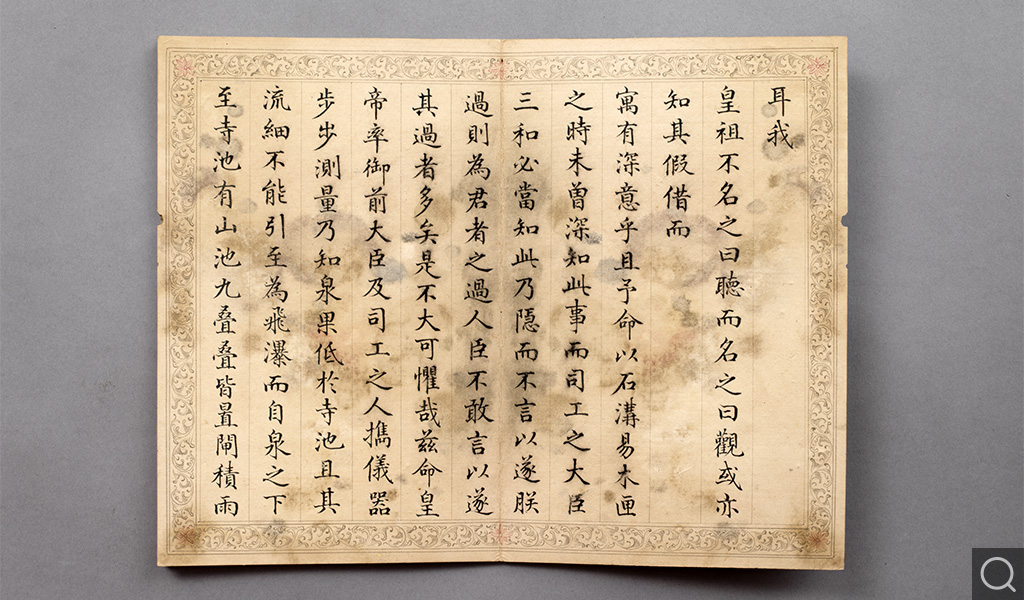 耳我
皇祖不名之曰聽而名之曰觀或亦
知其假借而
寓有深意乎且予命以石溝易木匣
之時未曽深知此事而司工之大臣
三和必當知此乃隱而不言以遂朕
過則為君者之過人臣不敢言以遂
其過者多矣是不大可懼哉茲命皇
帝率御前大臣及司工之人擕儀器
步步測量乃知泉果低於寺池且其
流細不能引至為飛瀑而自泉之下
至寺池有山池九叠叠皆置閘積雨